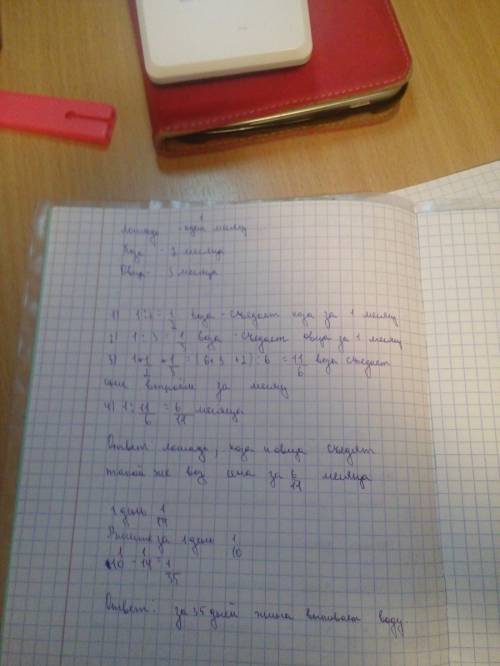 1
Лошадь - один месяц
Коза - 2 месяца
Овца - 3 месяца
1) 1:2 = 1/2 воза - съедает коза за 1 месяц
2) 1:3 = 1/3 воза - съедает овца за 1 месяц
3) 1+1/2+1/3 = (6+3+2):6 = 11/6 воза съедает
они втроем за месяц
4) 1:11/6 = 6/11 месяца
Ответ лошадь, коза и овца съедят
такой же воз сена за 6/11 месяца
1 день 1/14
Вместе за 1 день 1/10
1/10 - 1/14 = 1/35
Ответ: за 35 дней жена выпивает воду.